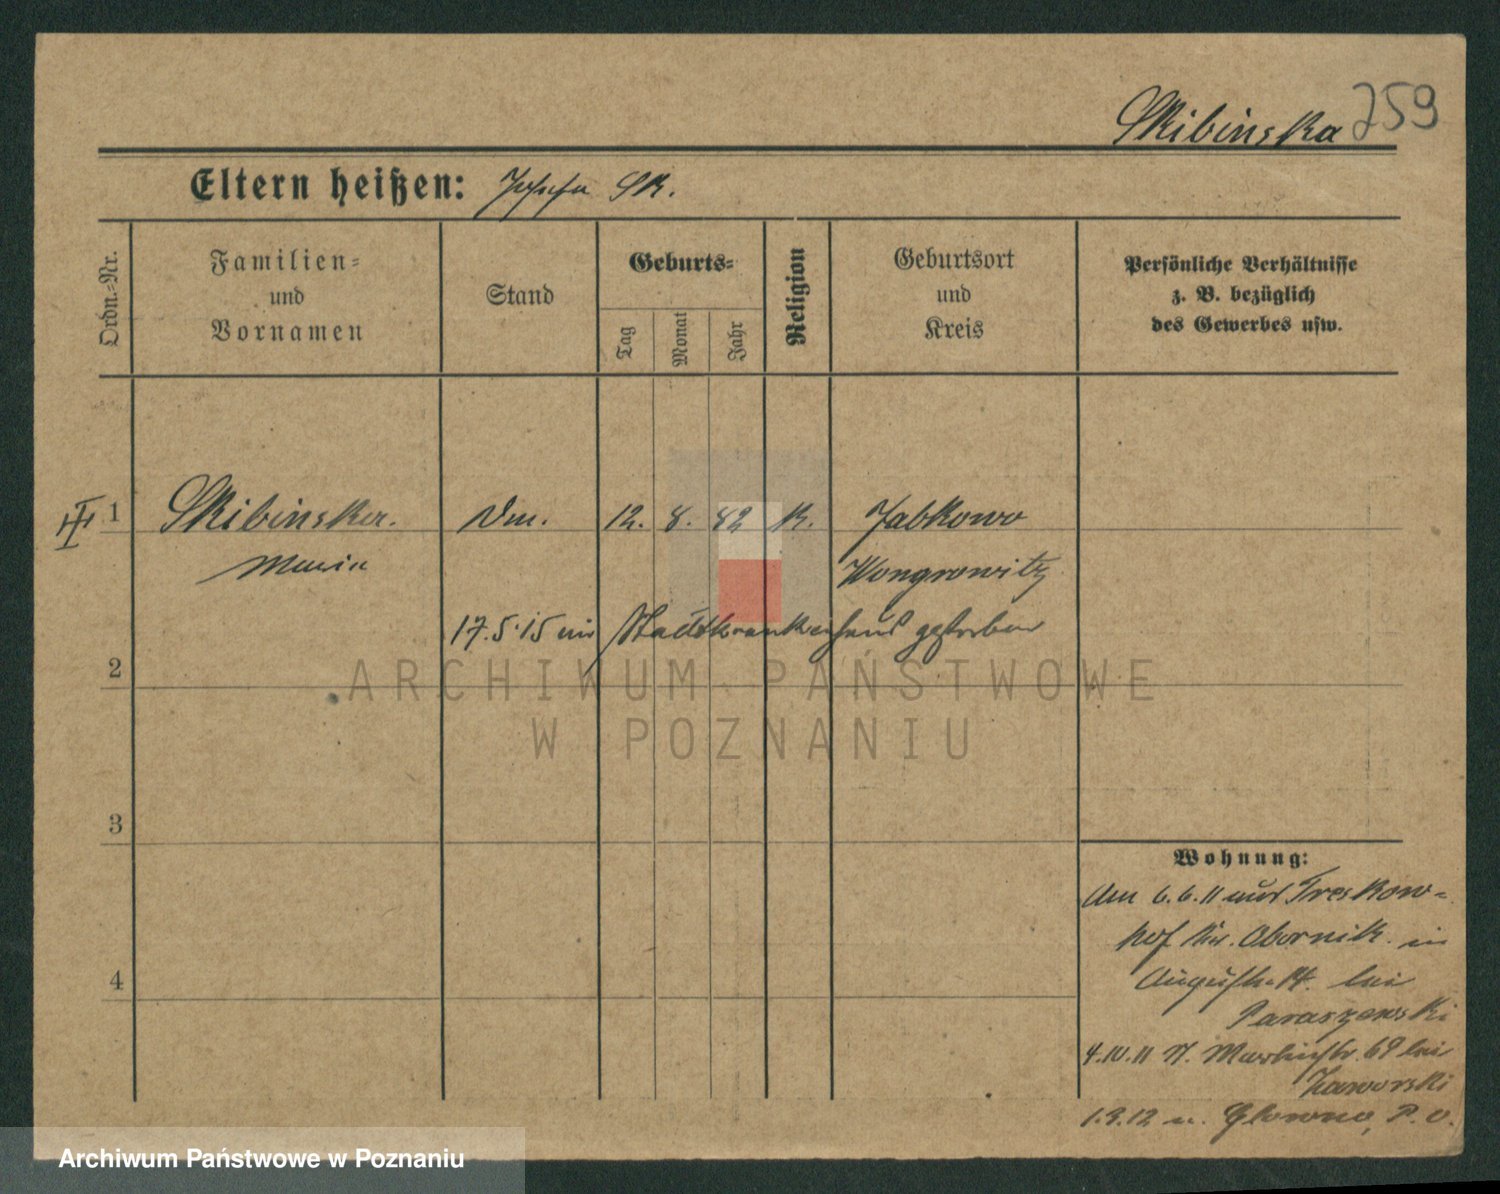 Skibinska 259
Eltern heißen: Josefa Sk.
Ordn.-Nr.
Familien=
und
Vornamen
Stand
Geburts=
Tag
Monat
Jahr
Religion
Geburtsort
und
Kreis
Persönliche Verhältnisse
z. B. bezüglich
des Gewerbes usw.
1 Skibinska. 12. 8. 82 K. Jabkowo
Maria Wongrowitz
17.5.15 im Stadtkrankenhaus gestorben
2
3
4
Wohnung:
Am 6.6.11 aus Treskow=
hof Kr. Obornik. in
Auguststr. 14. bei
Paraszewski
4.10.11 N. Martinstr. 69 bei
Jaworski
1.9.12 n. Glowno, P. O.
ARCHIWUM PAŃSTWOWE
W POZNANIU
Archiwum Państwowe w Poznaniu